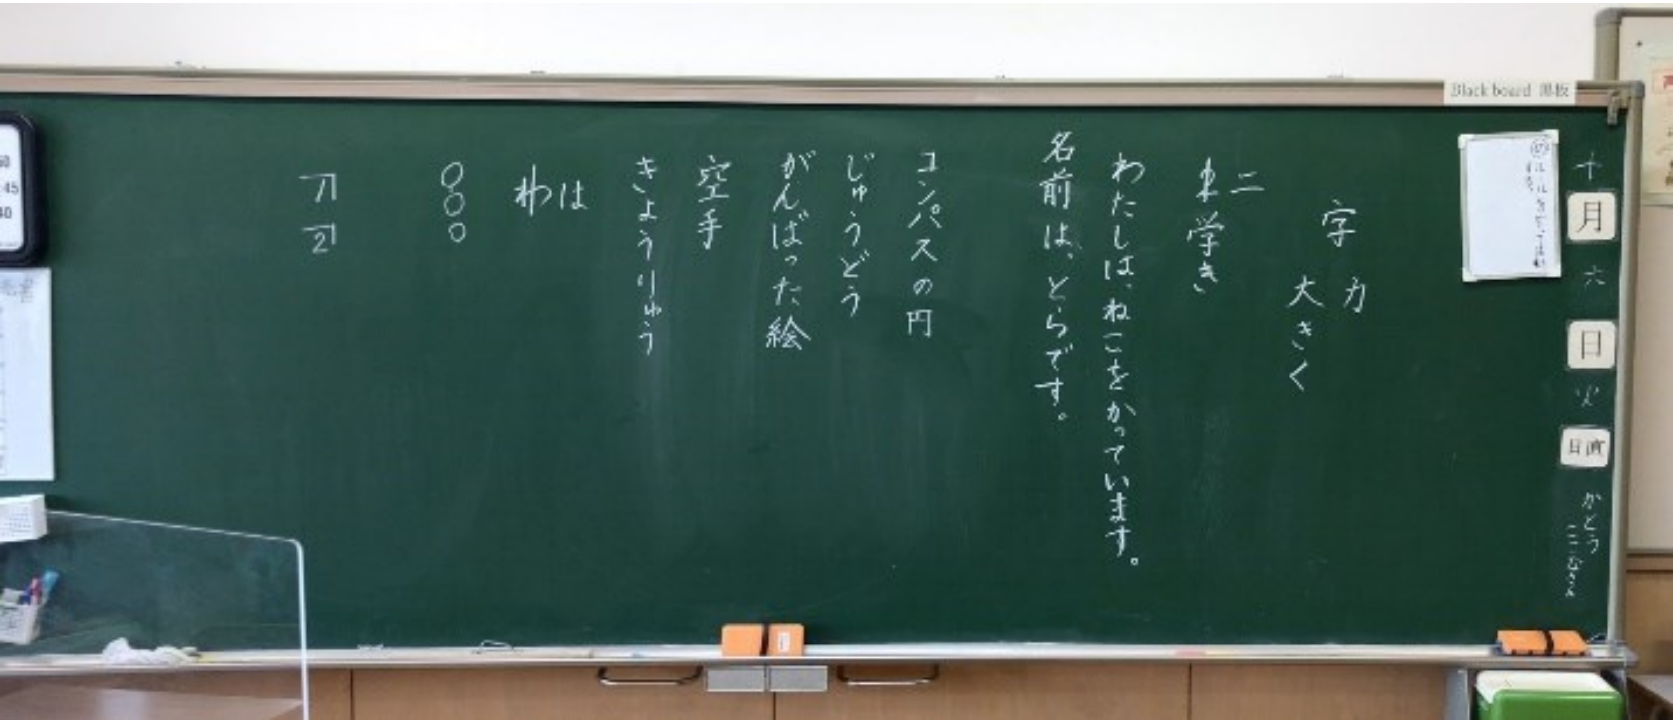 Black board 黒板
十月六日火
日直
かとう
字 力
大きく
二
学き
わたしは、ねこをかっています。
名前は、とらです。
コンパスの円
じゅうどう
がんばった絵
空手
きょうりゅう
は
わ
○○○
1
2